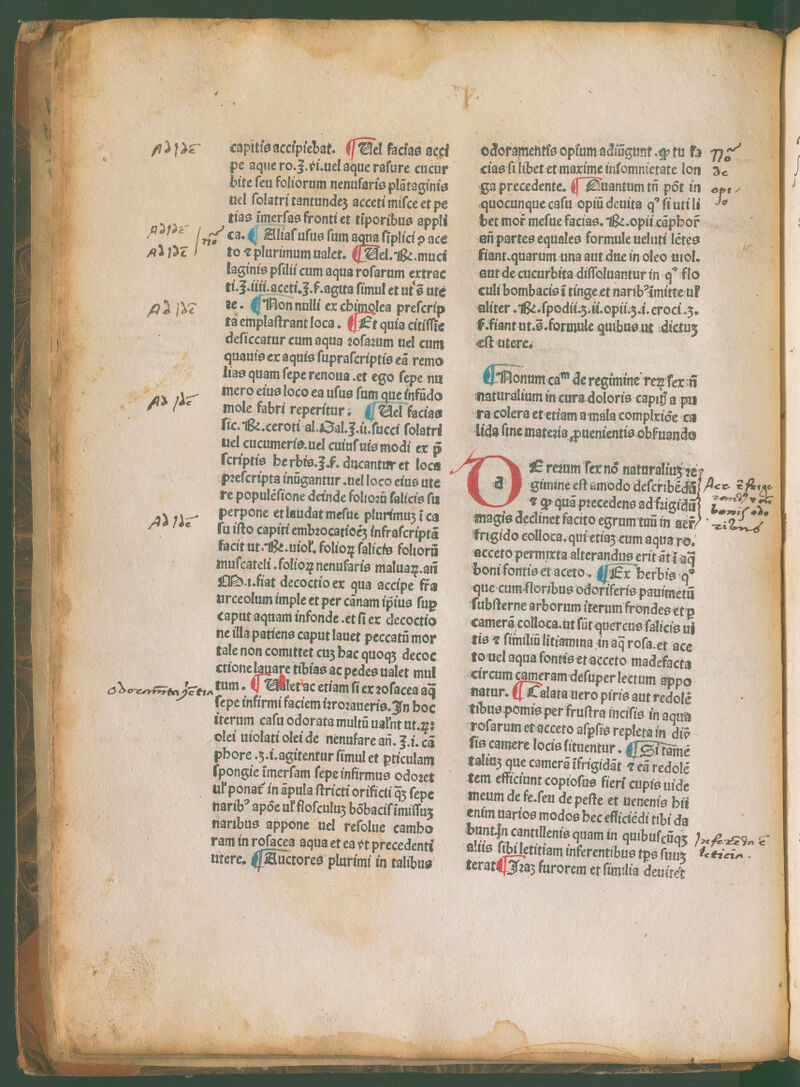 capitis accipiebat. ¶ Uel facias acci
pe aque ro.ʒ.vi.uel aque rasure cucur
bite seu foliorum nenufaris plātaginis
uel solatri tantundeʒ acceti misce et pe
tias īmersas fronti et tīporibus appli
ca. ¶ Alias usus sum aqua sīplici ꝓ ace
to ⁊ plurimum ualet. ¶ Uel.℞.muci
laginis psilii cum aqua rosarum extrac
ti.ʒ.iiii.aceti.ʒ.ſ.agita simul et ut s̄ ute
re. ¶ Non nulli ex chimolea prescrip
ta emplastrant loca. ¶ Et quia citissie
desiccatur cum aqua rosarum uel cum
quauis ex aquis suprascriptis eā remo
lias quam sepe renoua .et ego sepe nu
mero eius loco ea usus sum que infūdo
mole fabri reperitur. ¶ Uel facias
sic.℞.ceroti al.Gal.ʒ.ii.succi solatri
uel cucumeris.uel cuiusuis modi ex p̄
scriptis herbis.ʒ.ſ. ducantur et loca
prescripta inūgantur .uel loco eius ute
re populēsione deinde folioꝝ salicis su
perpone et laudat mesue plurimuʒ ī ca
su isto capiti embrocatiōēʒ infrascriptā
facit ut.℞.uiol̕. folioꝝ salicis folioꝝ
muscateli .folioꝝ nenufaris maluaꝝ.an̄
M.i.fiat decoctio ex qua accipe fr̄a
urceolum imple et per cānam ip̄ius sup
caput aquam infonde .et si ex decoctio
ne illa patiens caput lauet peccatū mor
tale non comittet cuʒ hac quoqʒ decoc
ctione lauare tibias ac pedes ualet mul
tum. ¶ Ualet ac etiam si ex rosacea aq̄
sepe infirmi faciem irroraueris.In hoc
iterum casu odorata multū ual̄nt ut.℞.
olei uiolati olei de nenufare an̄.ʒ.i.cā
phore .ʒ.i.agitentur simul et pticulam
spongie īmersam sepe infirmus odoret
ul̕ ponat̕ in āpula stricti orificii qʒ sepe
narib⁹ apōe ul̕ flosculuʒ bōbacis īmissuʒ
naribus appone uel resolue cambo
ram in rosacea aqua et ea vt precedenti
utere. ¶ Auctores plurimi in talibus
odoramentis opium adiūgunt .ꝙ tu fa
cias si libet et maxime insomnietate lon
ga precedente. ¶ Quantum tn̄ pōt in
quocunque casu opiū deuita q⁹ si uti li
bet mor̕ mesue facias.℞.opii cāphor̕
an̄ partes equales formule ueluti lētes
fiant.quarum una aut due in oleo uiol.
aut de cucurbita dissoluantur in q⁹ flo
culi bombacis ī tinge et narib⁹ īmitte ul̕
aliter .℞.spodii.ʒ.ii.opii.ʒ.i.croci.ʒ.
ſ.fiant ut.s̄. formule quibus ut dictuʒ
est utere.
¶ Nonum caᵐ de regimine reꝝ sex n̄
naturalium in cura doloris capit̕ a pu
ra colera et etiam a mala complxiōe ca
lida sine materia ꝓuenientis obfuando
DE rerum sex nō naturaliuʒ re
gimine est amodo describēdū
⁊ ꝙ quā precedens ad frigidū
magis declinet facito egrum tuū in aer̕
frigido colloca. qui etiaʒ cum aqua ro.
acceto permixta alterandus erit āt ī aq̄
boni fontis et aceto. ¶ Ex herbis q⁹
que cum floribus odoriferis pauimētū
substerne arborum iterum frondes et p
camerā colloca.ut sūt quercus salicis ui
tis ⁊ similiū litiamina in aq̄ rosa.et ace
to uel aqua fontis et acceto madefacta
circum cameram desuper lectum appo
natur. ¶ Talata uero piris aut redolē
tibus pomis per frustra incisis in aqua
rosarum et acceto aspsis repleta in diū
sis camere locis situentur. ¶ Si tamē
taliuʒ que camerā īfrigidāt ⁊ eā redolē
tem efficiunt copiosus fieri cupis uide
meum de fe.seu de peste et uenenis hii
enim uarios modos hec efficiēdi tibi da
bunt.In cantillenis quam in quibuscūqʒ
aliis sibi letitiam inferentibus tps suuʒ
terat ¶ Iraʒ furorem et similia deuiret